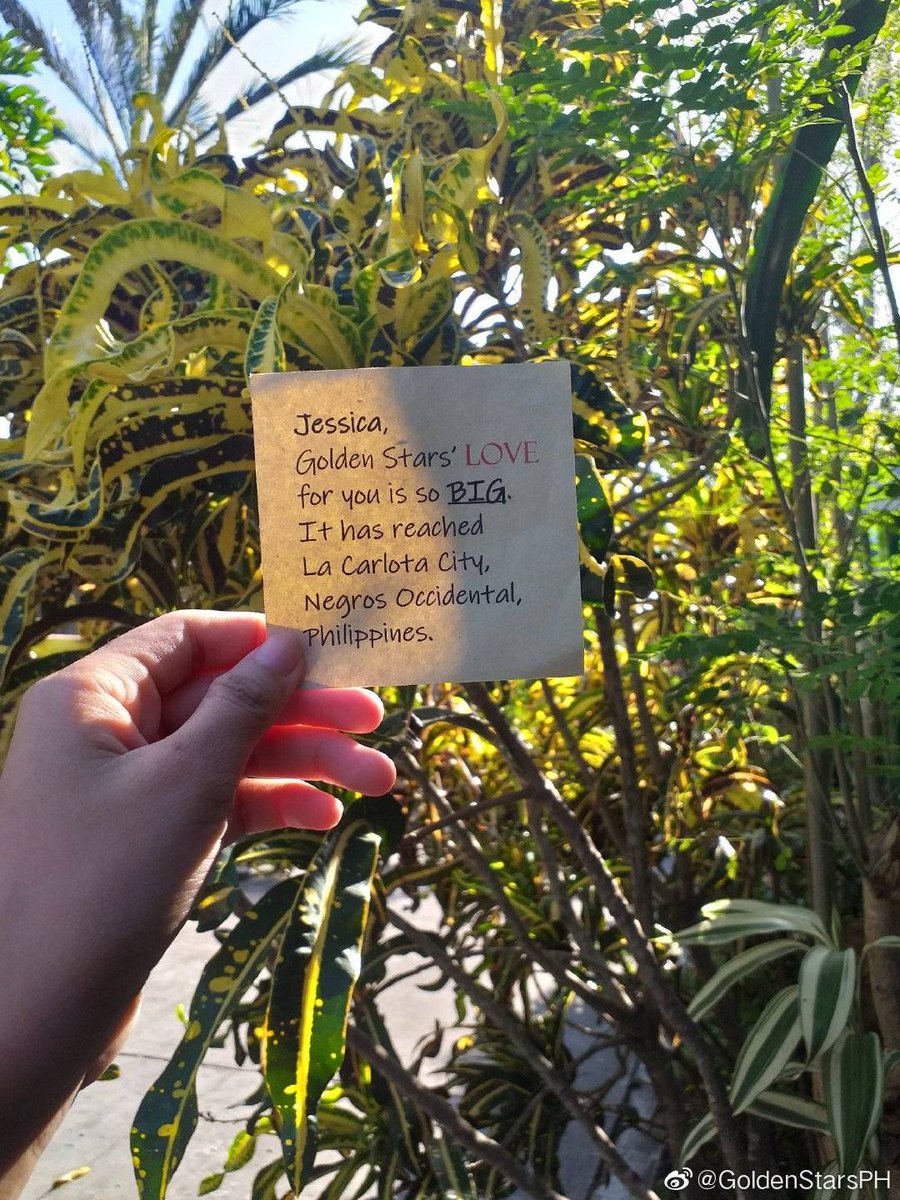 Jessica,
Golden Stars' LOVE
for you is so BIG.
It has reached
La Carlota City,
Negros Occidental,
Philippines.
@GoldenStarsPH